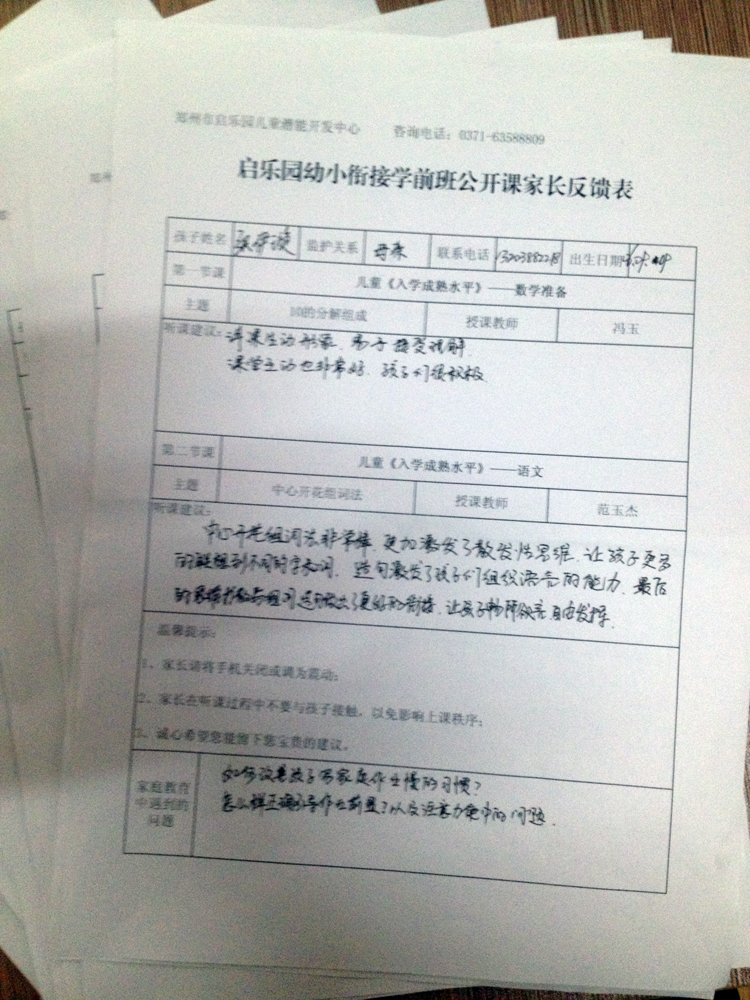 郑州市启乐园儿童潜能开发中心 咨询电话：0371-63588809
启乐园幼小衔接学前班公开课家长反馈表
孩子姓名 监护关系 母亲 联系电话 出生日期
第一节课 儿童《入学成熟水平》——数学准备
主题 10的分解组成 授课教师 冯玉
听课建议：讲课生动形象、易于接受理解.
课堂互动也非常好、孩子们很积极
第二节课 儿童《入学成熟水平》——语文
主题 中心开花组词法 授课教师 范玉杰
听课建议：
中心开花组词法非常棒，更加激发了散发性思维，让孩子更多
的联想到不同的字和词，造句激发了孩子们组织语言的能力，最后
的 组词造句做出了更好的衔接，让孩子畅所欲言，自由发挥.
温馨提示：
1、家长请将手机关闭或调为震动；
2、家长在听课过程中不要与孩子接触，以免影响上课秩序；
3、诚心希望您提留下您宝贵的建议。
家庭教育
中遇到的
问题
如何改善孩子写家庭作业慢的习惯？
怎么样正确引导作业 ？以及注意力集中的问题.